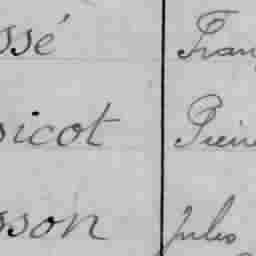 ssé Fran
sicot Pierre
sson Jules